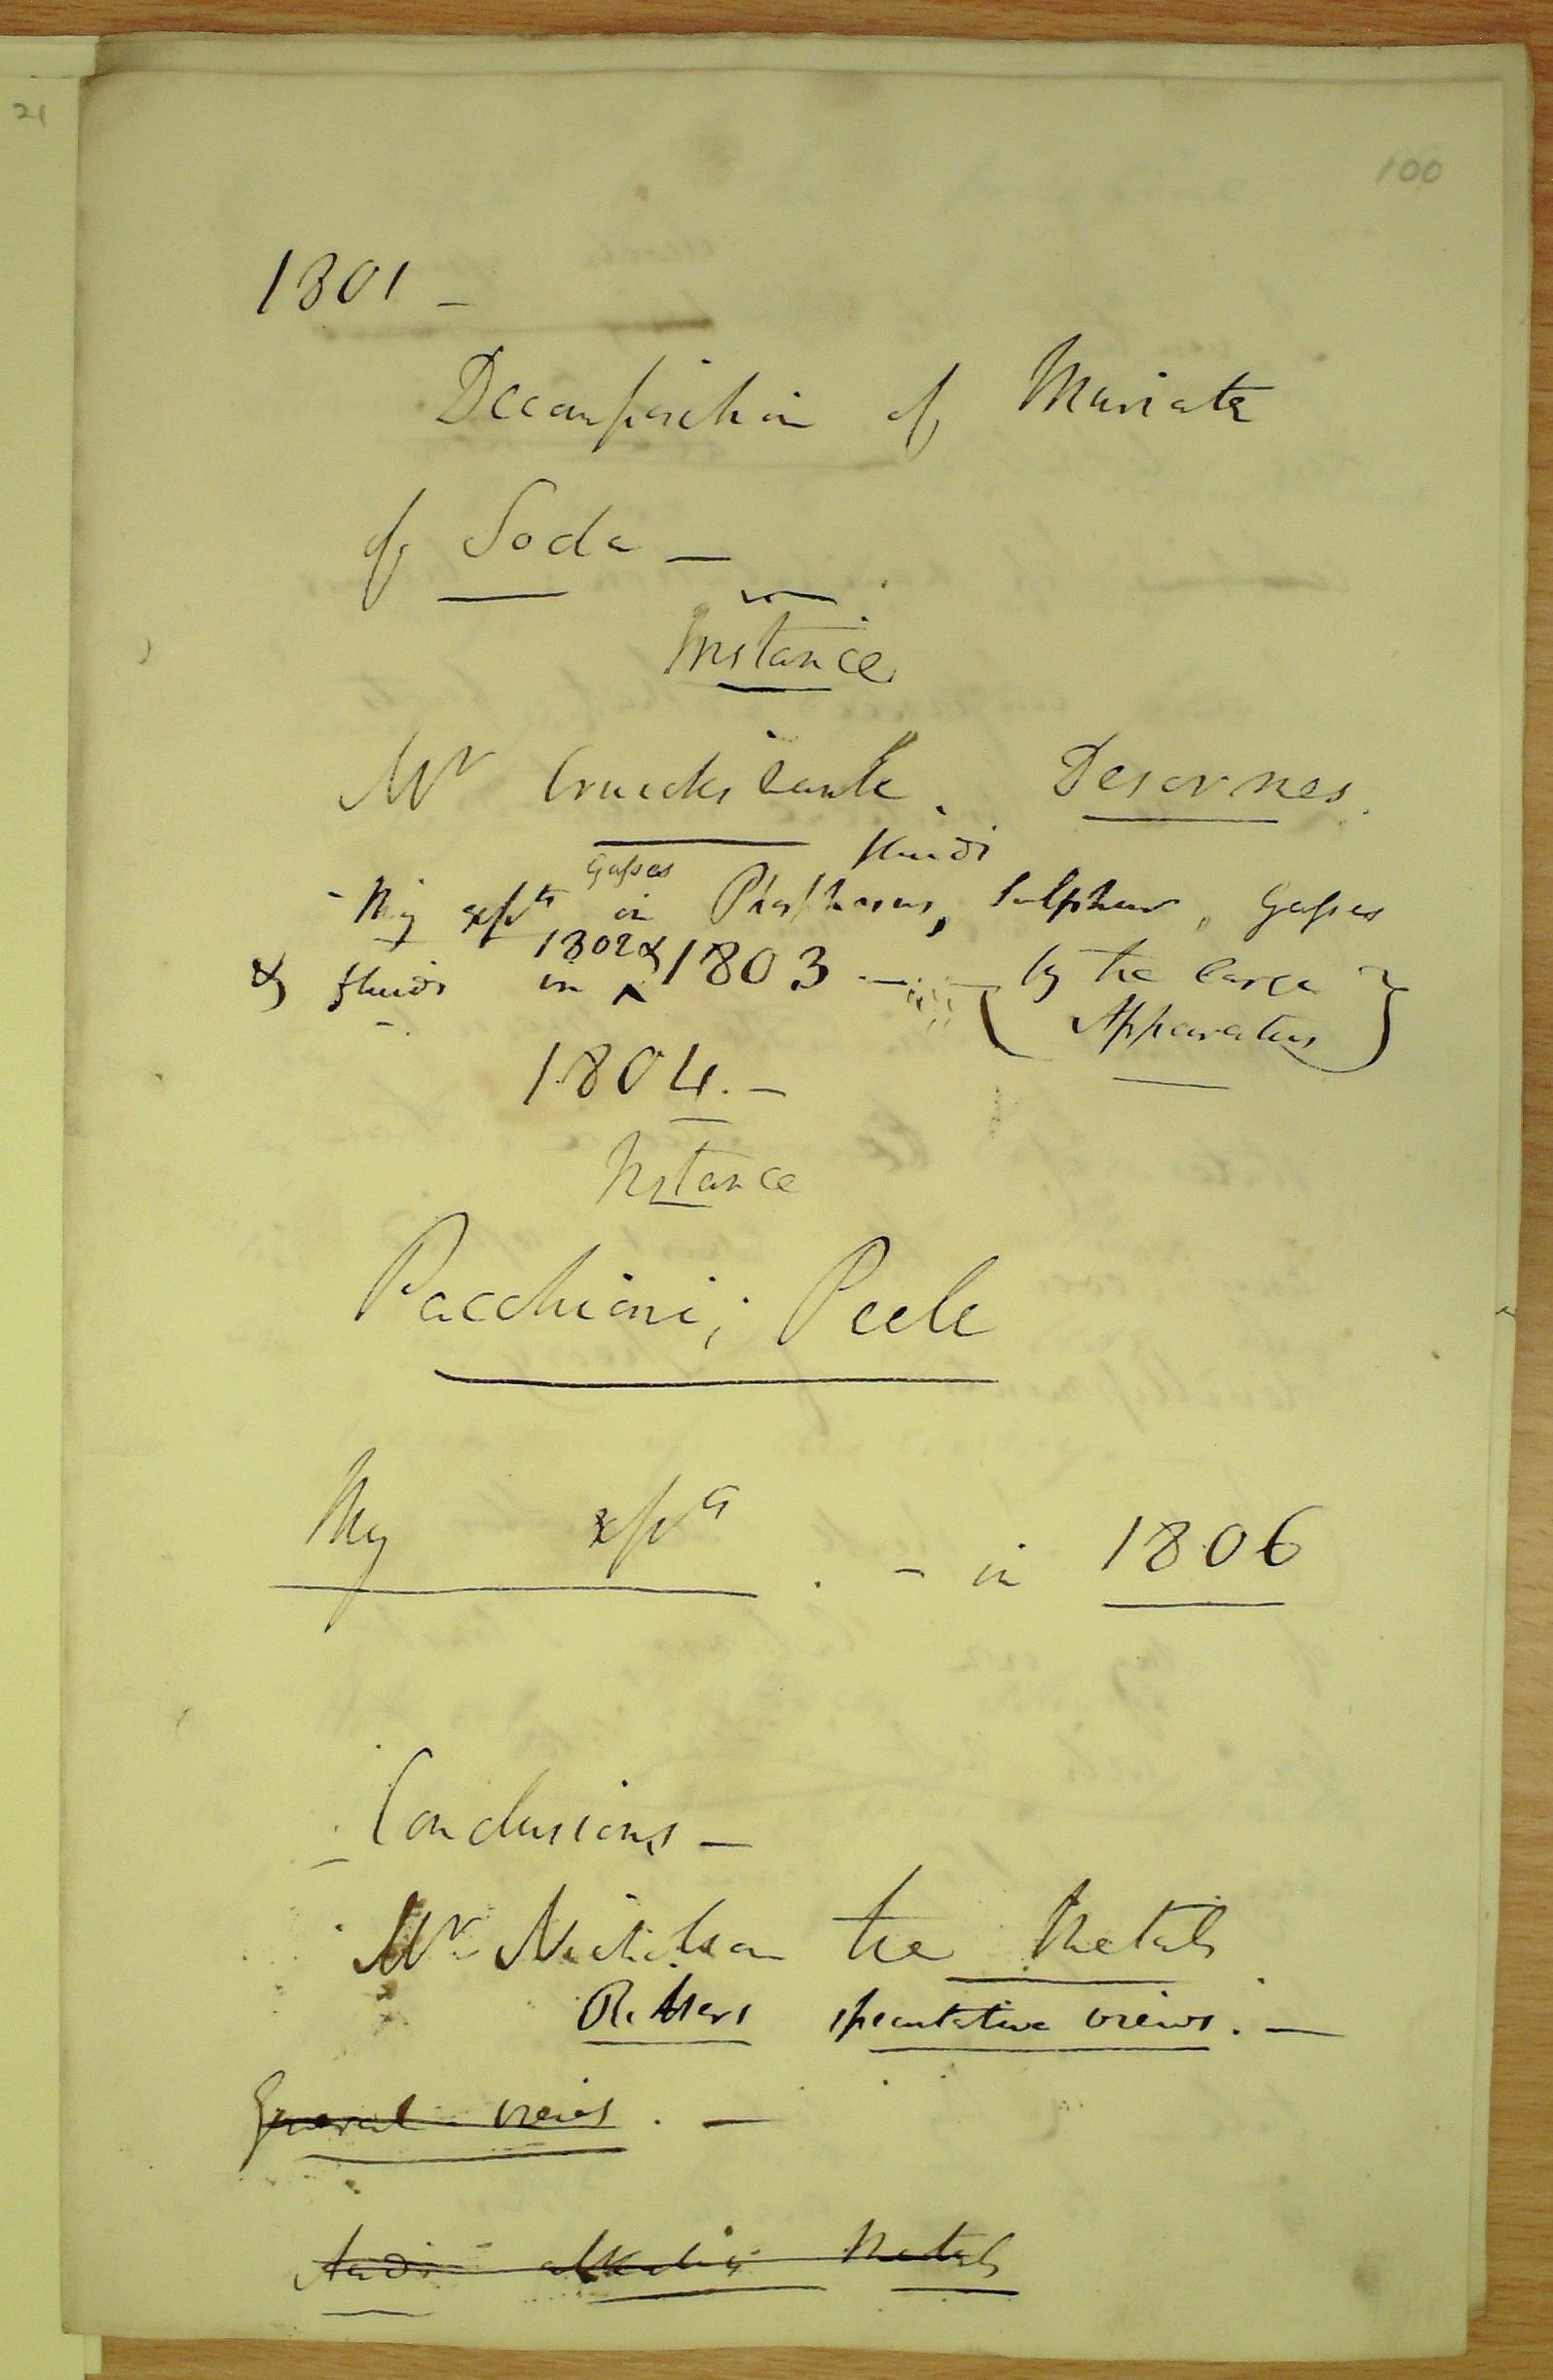 21
100
1801 –
Decomposition of Muriate
of Soda –
Instance
Mr Cruickshanke. Desormes.
fluids
Gasses
– My expts in Phosphorus, Sulphur, Gasses
1802 &
& fluids in ^ 1803 – – ( by the large
Apparatus )
1804. –
Instance
Pacchioni; Peele
My expts . – in 1806
Conclusions –
Mr Nicholson the Metals
Ritters speculative views. –
General views . –
Acids alkalies Metals